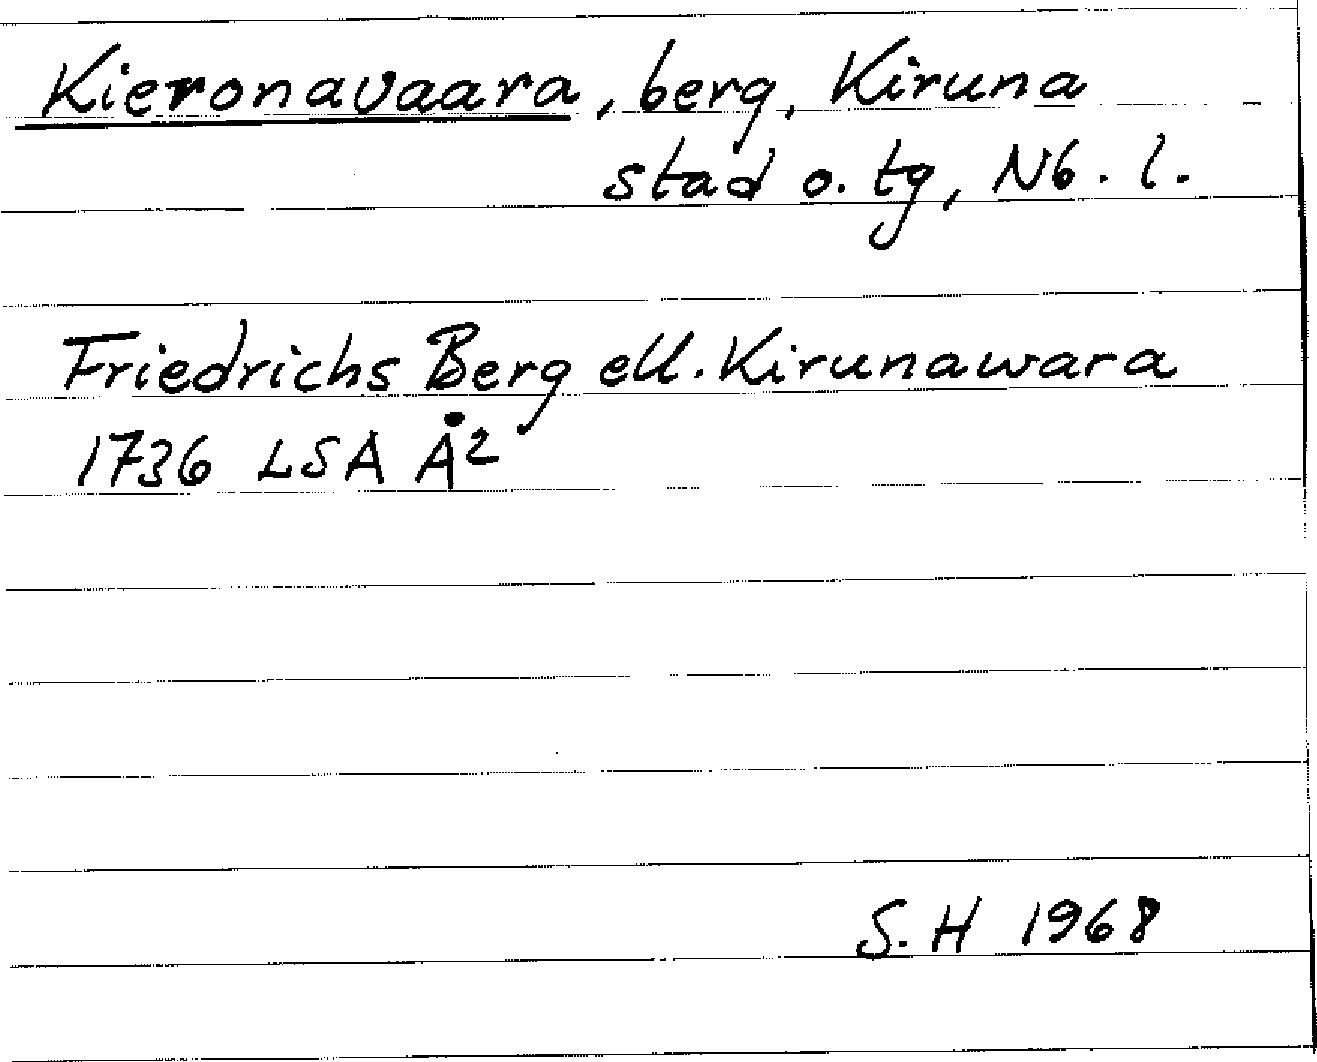 Kieronavaara, berg, Kiruna
stad o. tg, Nb. l.
Friedrichs Berg ell. Kirunawara
1736 LSA Å²
S. H 1968